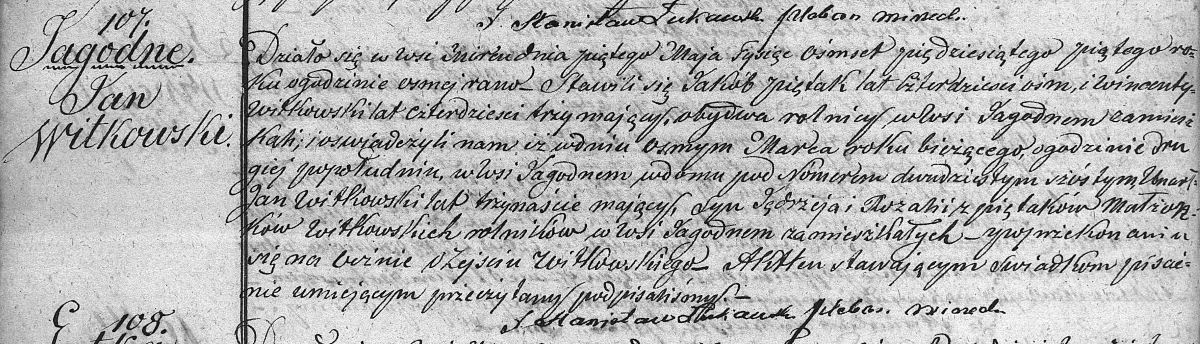 107.
Jagodne.
Jan
Witkowski.
X. Stanisław Pleban
Działo się w Wsi dnia piątego Maja Tysiąc Ośmset pięćdziesiątego piątego ro-
ku o godzinie osmej rano – Stawili się Jakób Piętak lat czterdzieści ośm, i Wincenty
Witkowski lat czterdzieści trzy mający, obydwa rolnicy w Wsi Jagodnem zamiesz
kali; i oświadczyli nam iż w dniu osmym Marca roku bieżącego, o godzinie dru
giej popołudniu, w Wsi Jagodnem w domu pod Numerem dwudziestym szóstym, Umarł
Jan Witkowski lat trzynaście mający, Syn Jędrzeja i Rozalii z Piętaków Małżon-
ków Witkowskich rolników w Wsi Jagodnem zamieszkałych – po przekonaniu
się naocznie o Zejściu Witkowskiego – Akt ten stawającym Świadkom pisa
nie umiejącym przeczytany podpisaliśmy. –
X. Stanisław Pleban
108.